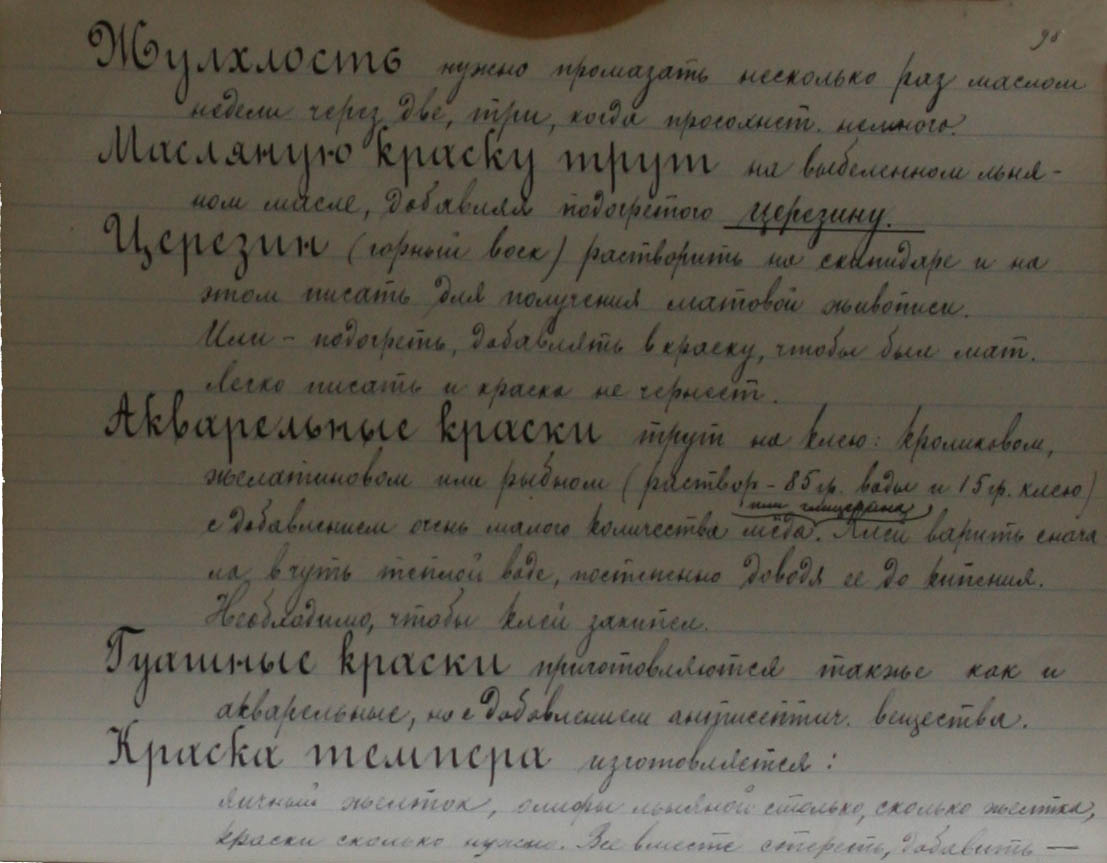 98
Жулхлость нужно промазать несколько раз маслом
недели через две, три, когда просохнет. немного.
Масляную краску трут на выбеленном льня-
ном масле, добавляя подогретого церезину.
Церезин (горный воск) растворить на скипидаре и на
этом писать для получения матовой живописи.
Или - подогреть, добавлять в краску, чтобы был мат.
Легко писать и краска не чернеет.
Акварельные краски трут на клею: кроликовом,
желатиновом или рыбном (раствор - 85 гр. воды и 15 гр. клею)
или глицерина
с добавлением очень малого количества мёда. Клей варить снача
ла в чуть тёплой воде, постепенно доводя ее до кипения.
Необходимо, чтобы клей закипел.
Гуашные краски приготовляются также как и
акварельные, но с добавлением антисептич. вещества.
Краска темпера изготовляется:
яичный желток, олифы льняной столько, сколько желтка,
краски сколько нужно. Все вместе стереть, добавить —